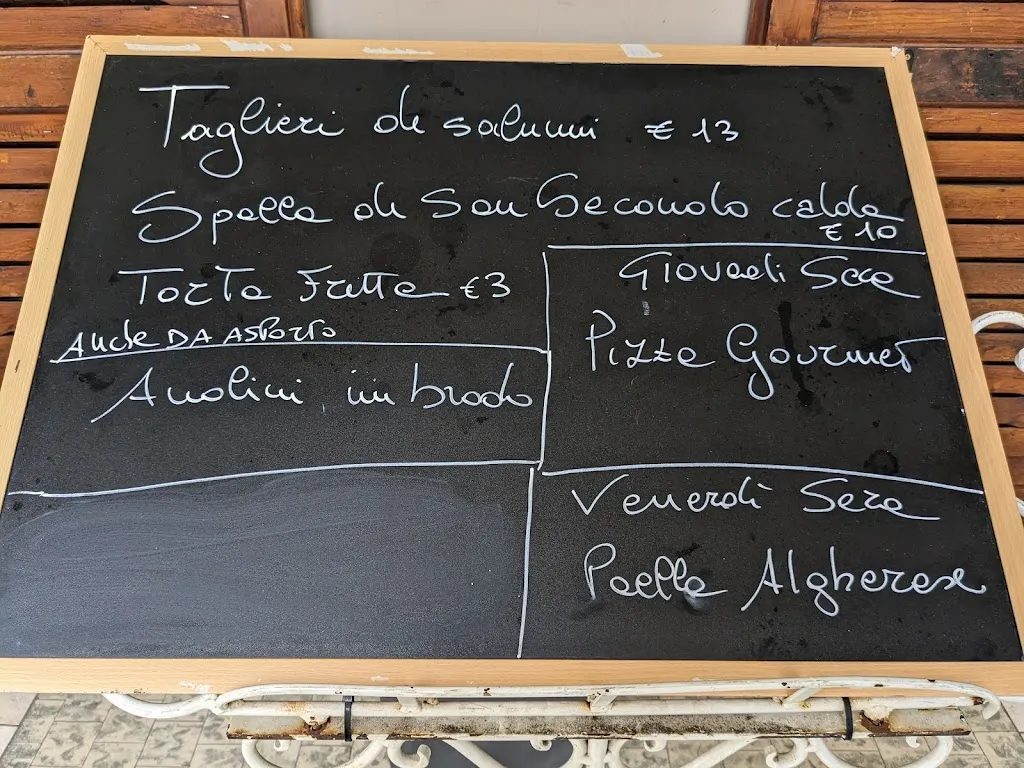 Taglieri di salumi € 13
Spalla di San Secondo calda
€ 10
Torta Fritta € 3
Anche DA ASPORTO
Anolini in brodo
Giovedi Sera
Pizza Gourmet
Venerdì Sera
Paella Algherese